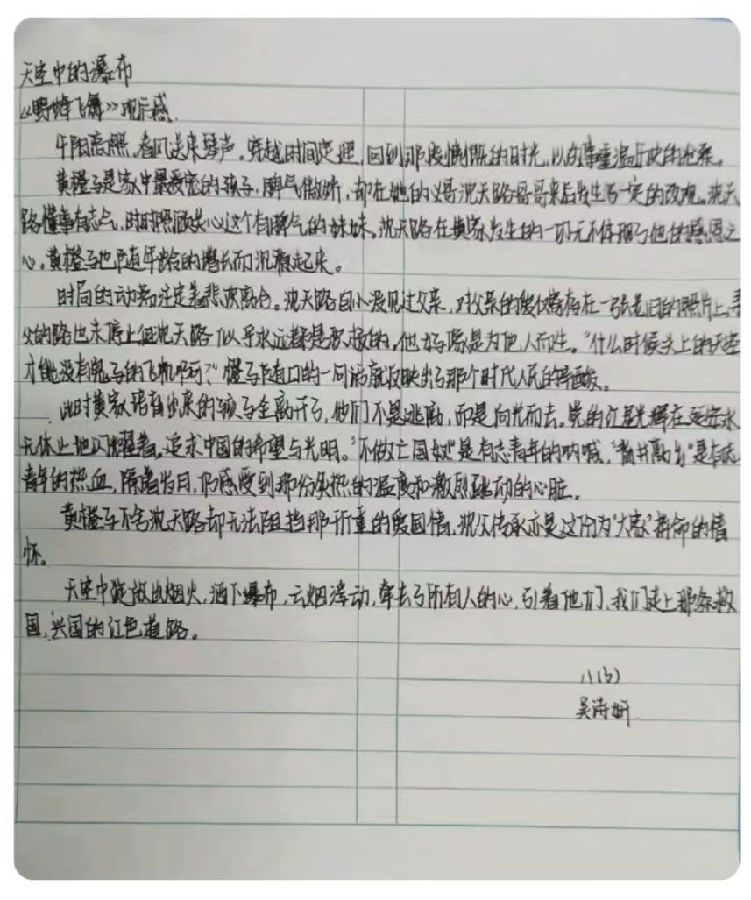 天空中的瀑布
《野蜂飞舞》观后感
午阳高照,春风送来琴声。穿越时间定理,回到那段慷慨的时光,以的尊重温历史的沧桑。
黄橙子是家中最受宠的孩子,脾气傲娇,却在她的义哥沈天路哥哥来后发生了一定的改观。沈天
路懂事有志气,时时照顾关心这个有脾气的妹妹。沈天路在黄家发生的一切无不体现了他的感恩之
心。黄橙子也随年龄的增长而沉稳起来。
时局的动荡注定着悲欢离合。沈天路自小没见过父亲,对父亲的爱仅寄存在一张老旧的照片上,寻
父的路也未停止但沈天路似乎永远都是积极的,他好像是为他人而生。"什么时候头上的天空
才能没有鬼子的飞机啊?"橙子随口的一问就反映出了那个时代人民的辛酸。
此时黄家培育出来的孩子全离开了,他们不是逃离,而是向光而去。党的红星光辉在延安水
无休止地闪耀着,追求中国的希望与光明。"不做亡国奴"是有志青年的呐喊,
青年的热血,隔着岁月,仍感受到那份炙热的温度和激烈跳动的心脏。
黄橙子不舍沈天路却无法阻挡那沉重的爱国情,沈父传承亦是这份为"大家"拼命的情
怀。
天空中绽放出烟火,洒下瀑布,云烟浮动,牵去了所有人的心,引着他们、我们走上那条救
国、兴国的红色道路。
八(3)
吴诗妍